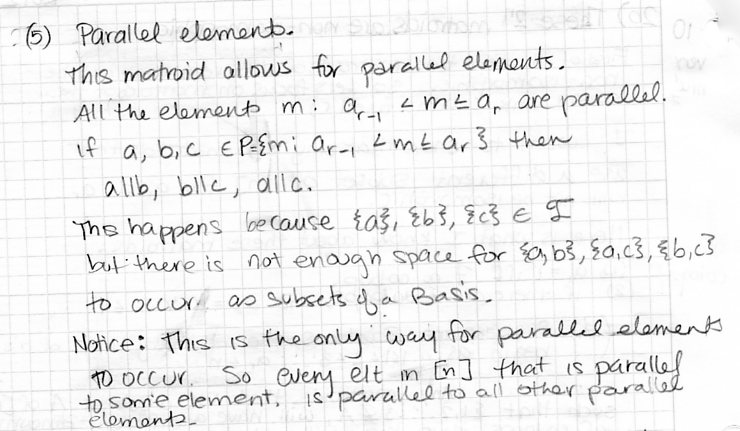 (5) Parallel elements.
This matroid allows for parallel elements.
All the elements m: a_{r-1} < m ≤ a_r are parallel.
if a, b, c ∈ P={m: a_{r-1} < m ≤ a_r} then
a||b, b||c, a||c.
This happens because {a}, {b}, {c} ∈ I
but there is not enough space for {a,b}, {a,c}, {b,c}
to occur as subsets of a Basis.
Notice: This is the only way for parallel elements
to occur. So every elt in [n] that is parallel
to some element, is parallel to all other parallel
elements.